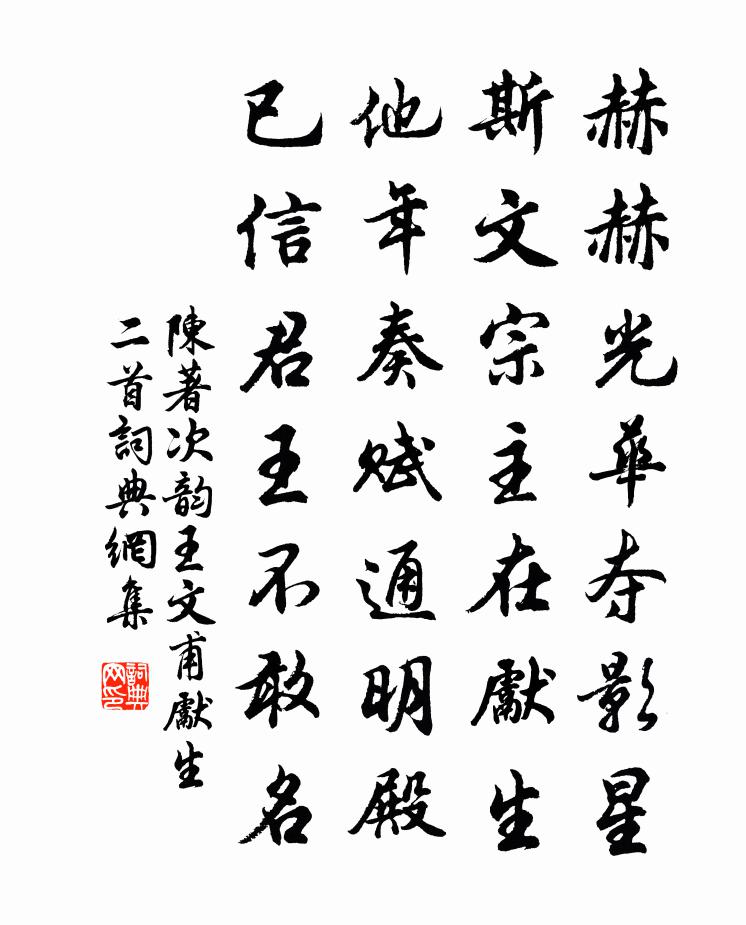 赫赫光華夺影星
斯文宗主在獻生
他年奏赋通明殿
已信君王不敢名
陳著次韵王文甫獻生
二首詞典網集
詞典網印